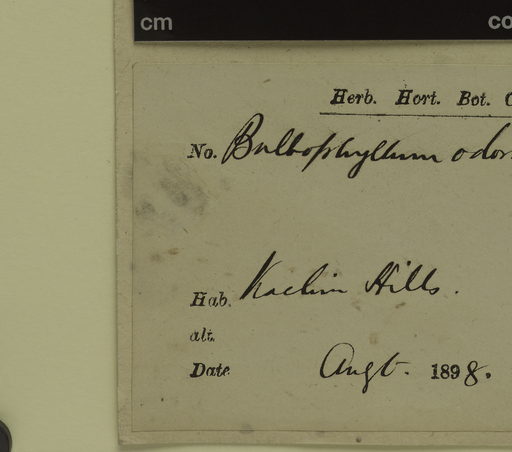 cm
Herb. Hort. Bot.
No. Bulbophyllum
Hab. Kachin Hills.
alt.
Date Augt. 1898.